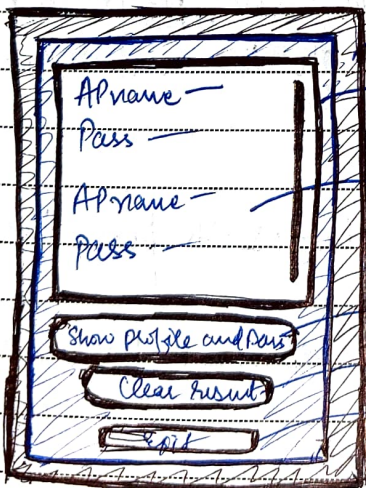 APname —
Pass —
APname —
Pass —
Show profile and Pass
Clear result
Exit